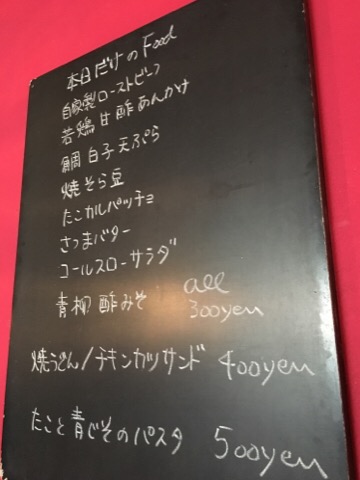 本日だけのFood
自家製ローストビーフ
若鶏甘酢あんかけ
鯛白子天ぷら
焼そら豆
たこカルパッチョ
さつまバター
コールスローサラダ
青柳酢みそ all 300yen
焼うどん/チキンカツサンド 400yen
たこと青じそのパスタ 500yen